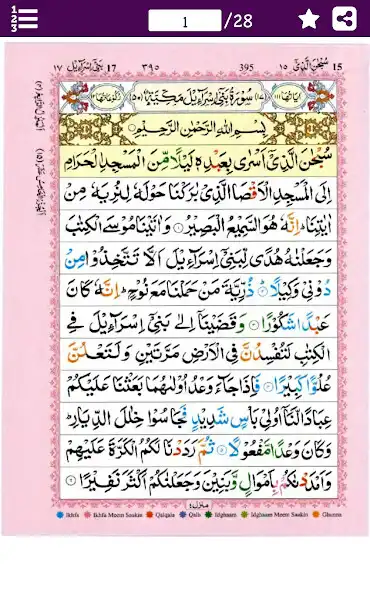 1 /28
١٧ بنی اسرآءیل 17 ٣٩٥ 395 سُبْحٰنَ الَّذِیْۤ ١٥ 15
سُوْرَةُ بَنِیْۤ اِسْرَآءِیْلَ مَكِّیَّةٌ
بِسْمِ اللهِ الرَّحْمٰنِ الرَّحِیْمِ
سُبْحٰنَ الَّذِیْۤ اَسْرٰی بِعَبْدِهٖ لَیْلًا مِّنَ الْمَسْجِدِ الْحَرَامِ
اِلَی الْمَسْجِدِ الْاَقْصَا الَّذِیْ بٰرَكْنَا حَوْلَهٗ لِنُرِیَهٗ مِنْ
اٰیٰتِنَا ؕ اِنَّهٗ هُوَ السَّمِیْعُ الْبَصِیْرُ ① وَ اٰتَیْنَا مُوْسَی الْكِتٰبَ
وَجَعَلْنٰهُ هُدًی لِّبَنِیْۤ اِسْرَآءِیْلَ اَلَّا تَتَّخِذُوْا مِنْ
دُوْنِیْ وَكِیْلًا ② ذُرِّیَّةَ مَنْ حَمَلْنَا مَعَ نُوْحٍ ؕ اِنَّهٗ كَانَ
عَبْدًا شَكُوْرًا ③ وَقَضَیْنَاۤ اِلٰی بَنِیْۤ اِسْرَآءِیْلَ فِی
الْكِتٰبِ لَتُفْسِدُنَّ فِی الْاَرْضِ مَرَّتَیْنِ وَلَتَعْلُنَّ
عُلُوًّا كَبِیْرًا ④ فَاِذَا جَآءَ وَعْدُ اُوْلٰىهُمَا بَعَثْنَا عَلَیْكُمْ
عِبَادًا لَّنَاۤ اُولِیْ بَاْسٍ شَدِیْدٍ فَجَاسُوْا خِلٰلَ الدِّیَارِ ؕ
وَكَانَ وَعْدًا مَّفْعُوْلًا ⑤ ثُمَّ رَدَدْنَا لَكُمُ الْكَرَّةَ عَلَیْهِمْ
وَاَمْدَدْنٰكُمْ بِاَمْوَالٍ وَّبَنِیْنَ وَجَعَلْنٰكُمْ اَكْثَرَ نَفِیْرًا ⑥
منزل٤
Ikhfa Ikhfa Meem Saakin Qalqala Qalb Idghaam Idghaam Meem Saakin Ghunna